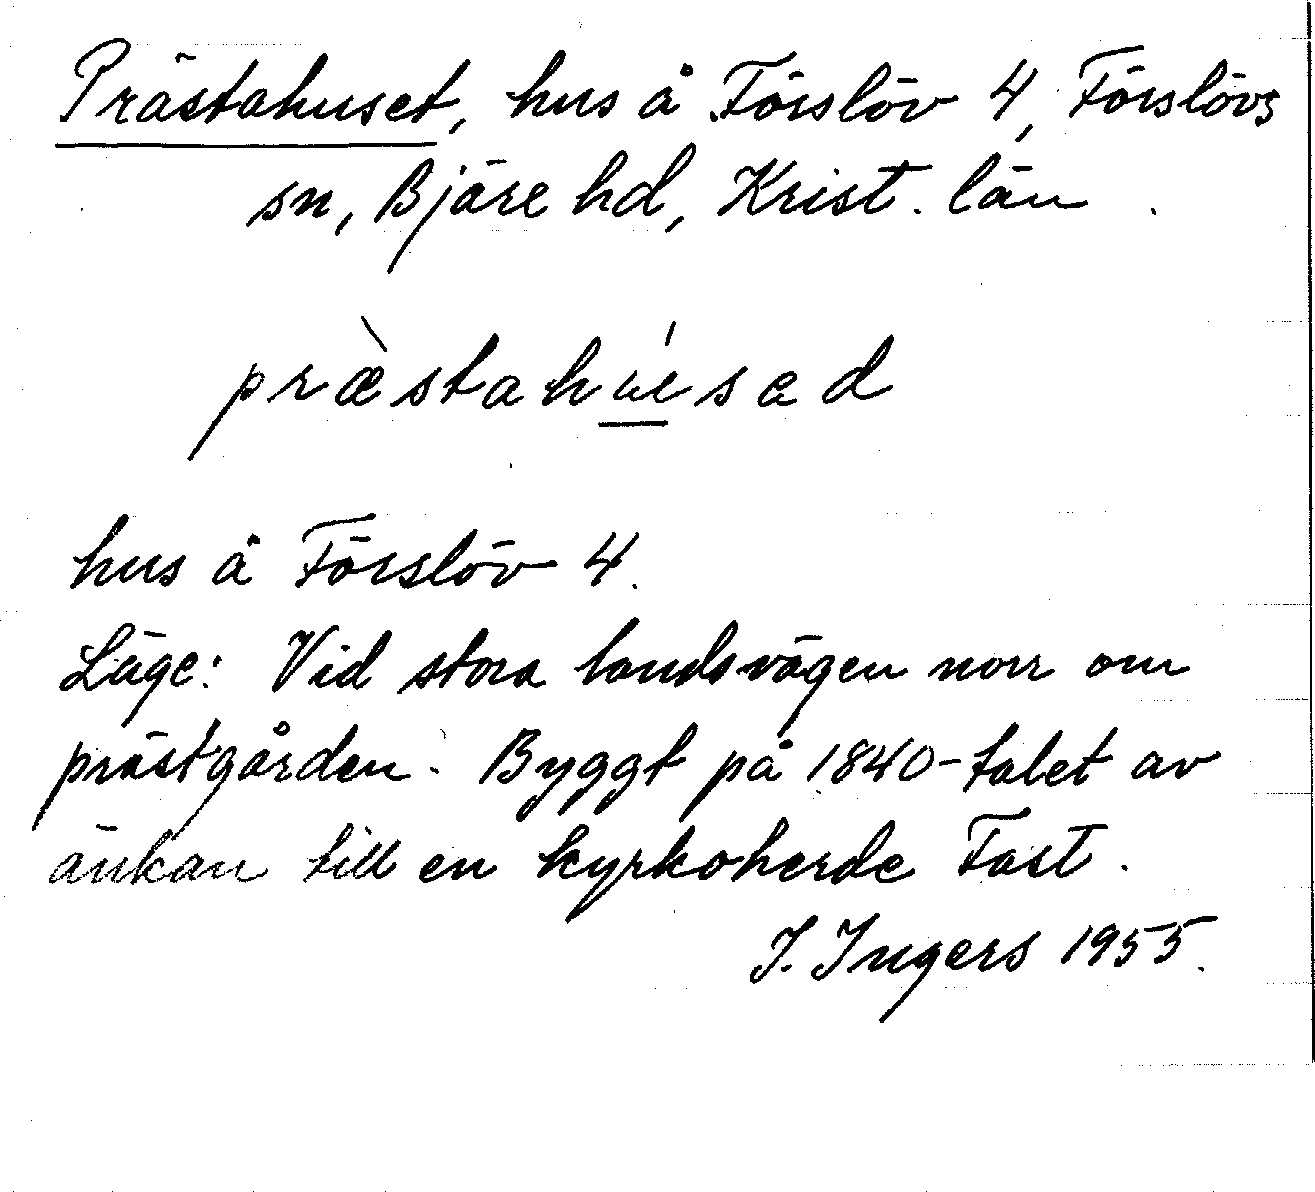 Prästahuset, hus å Förslöv 4, Förslövs
sn, Bjäre hd, Krist. län.
præ̀stahúsad
hus å Förslöv 4.
Läge: Vid stora landsvägen norr om
prästgården. Byggt på 1840-talet av
änkan till en kyrkoherde Fast.
I. Ingers 1955.